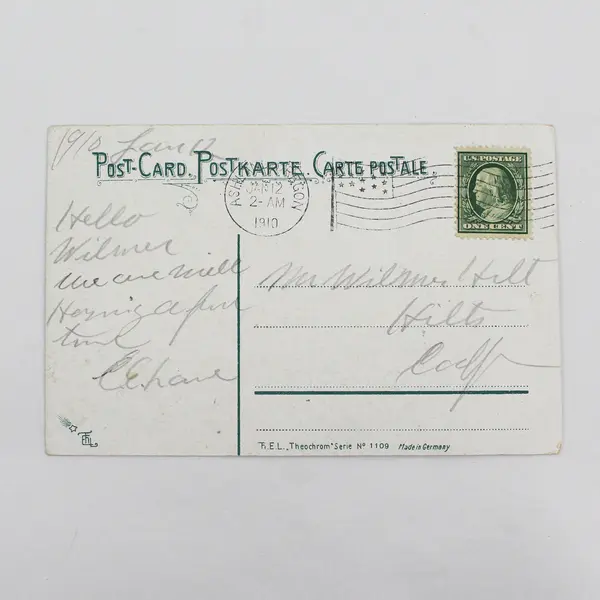 1910 Jan 12
POST-CARD. POSTKARTE. CARTE POSTALE.
U.S. POSTAGE
ONE CENT
JAN 12
2-AM
1910
OREGON
Hello
Wilmer
we are well
Having a fine
time
Mr Wilmer Hilt
Hilts
Calif
T.E.L. „Theochrom" Serie Nº 1109 Made in Germany